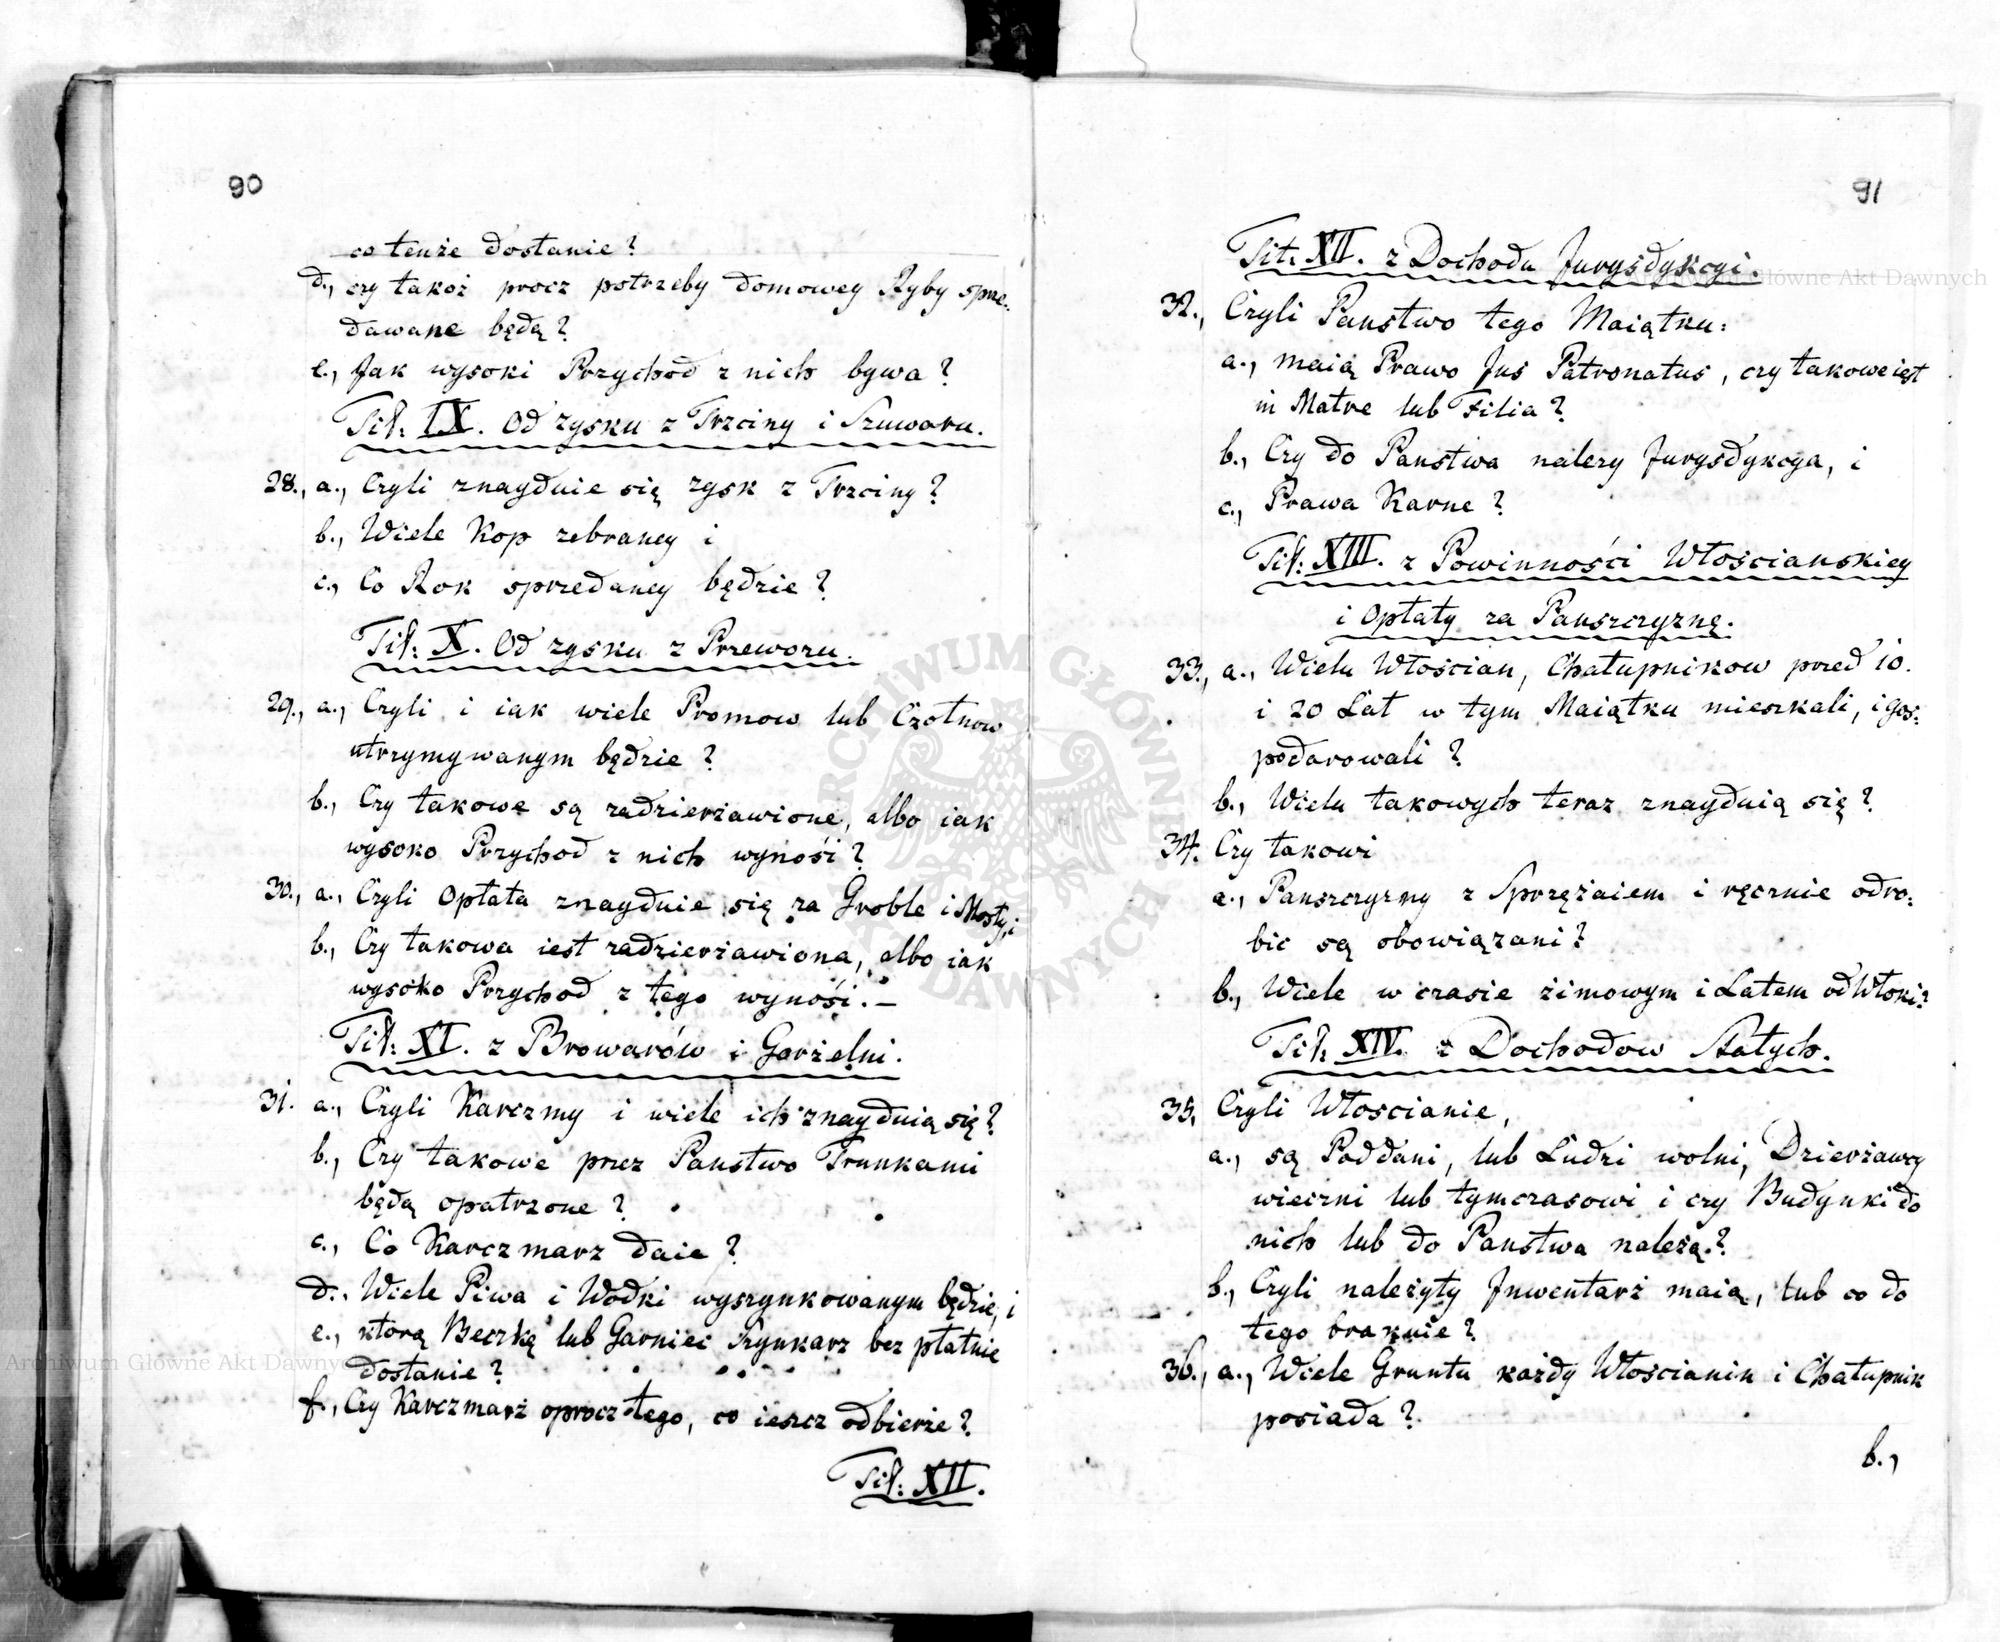 90
co tenże dostanie?
d., czy takoż procz potrzeby domowey Ryby sprze-
dawane będą?
e., Jak wysoki Przychod z nich bywa?
Tit: IX. Od zysku z Trzciny i Szuwaru.
28., a., Czyli znayduie się zysk z Trzciny?
b., Wiele Kop zebraney i
c., Co Rok sprzedaney będzie?
Tit: X. Od zysku z Przewozu.
29., a., Czyli i iak wiele Promow lub Czołnow
utrzymywanym będzie?
b., Czy takowe są zadzierżawione, albo iak
wysoko Przychod z nich wynośi?
30., a., Czyli Opłata znayduie się za Groble i Mosty, i
b., Czy takowa iest zadzierżawiona, albo iak
wysoko Przychod z tego wynośi.–
Tit: XI. z Browarów i Gorzelni.
31. a., Czyli Karczmy i wiele ich znayduią się?
b., Czy takowe przez Panstwo Trunkami
będą opatrzone?
c., Co Karczmarz daie?
d., Wiele Piwa i Wodki wyszynkowanym będzie, i
e., ktorą Beczkę lub Garniec Szynkarz bez płatnie
dostanie?
f., Czy Karczmarz oprocz tego, co ieszcz odbierze?
Tit: XII.
91
Tit: XII. z Dochodu Jurysdykcyi.
32., Czyli Panstwo tego Maiątku:
a., maią Prawo Jus Patronatus, czy takowe iest
in Matre lub Filia?
b., Czy do Panstwa nalezy Jurysdykcya, i
c., Prawa Karne?
Tit: XIII. z Powinności Włościanskiey
i Opłaty za Panszczyznę.
33., a., Wielu Włościan, Chałupnikow przed 10.
i 20 Lat w tym Maiątku mieszkali, i gos-
podarowali?
b., Wielu takowych teraz znayduią się?
34. Czy takowi
a., Panszczyzny z Sprzężaiem i ręcznie odro-
bić są obowiązani?
b., Wiele w czasie zimowym i Latem od Włoki?
Tit: XIV. z Dochodow Stałych.
35, Czyli Włoscianie,
a., są Poddani, lub Ludzi wolni, Dzierżawcy
wieczni lub tymczasowi i czy Budynki do
nich lub do Panstwa należą?
b., Czyli należyty Inwentarż maią, lub co do
tego braknie?
36., a., Wiele Gruntu każdy Włoscianin i Chałupnik
posiada?
b.,
Archiwum Główne Akt Dawnych
Archiwum Główne Akt Dawnych
ARCHIWUM GŁÓWNE AKT DAWNYCH